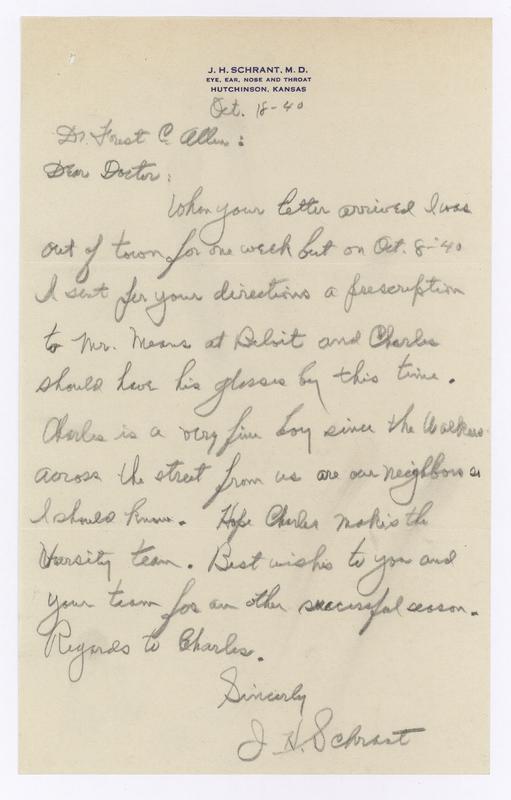 J. H. SCHRANT, M. D.
EYE, EAR, NOSE AND THROAT
HUTCHINSON, KANSAS
Oct. 18-40
Dr. Forest C. Allen:
Dear Doctor:
When your letter arrived I was
out of town for one week but on Oct. 8-40
I sent per your directions a prescription
to Mr. Means at Beloit and Charles
should have his glasses by this time.
Charles is a very fine boy since the Walkers
across the street from us are our neighbors so
I should know. Hope Charles makes the
Varsity team. Best wishes to you and
your team for an other successful season.
Regards to Charles.
Sincerly
J. H. Schrant